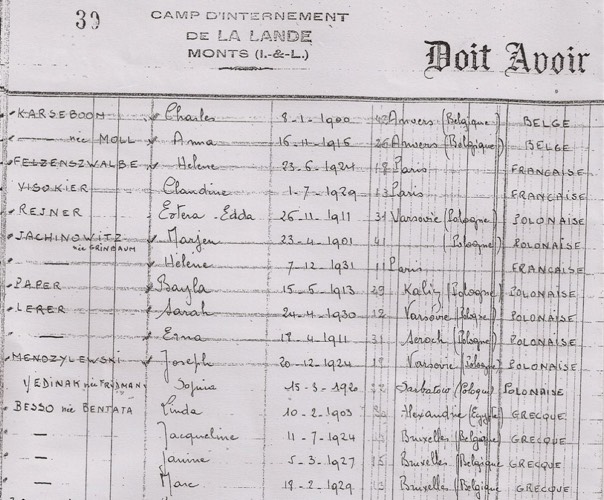 39
CAMP D'INTERNEMENT
DE LA LANDE
MONTS (I.-&-L.)
Doit Avoir
KARSEBOOM Charles 8-1-1900 42 Anvers (Belgique) BELGE
— née MOLL Anna 16-11-1916 26 Anvers (Belgique) BELGE
FELZENSZWALBE Helene 23-6-1924 18 Paris FRANCAISE
VISOKIER Claudine 1-7-1929 13 Paris FRANCAISE
REJNER Estera-Edda 26-11-1911 31 Varsovie (Pologne) POLONAISE
JACHINOWITZ Marjem 23-4-1901 41 (Pologne) POLONAISE
née GRINBAUM
— Hélène 7-12-1931 11 Paris FRANCAISE
PAPER Bayla 15-5-1913 29 Kalisz (Pologne) POLONAISE
LERER Sarah 24-4-1930 12 Varsovie (Pologne) POLONAISE
— Erna 18-4-1911 31 Serock (Pologne) POLONAISE
MENDZYLEWSKI Joseph 20-12-1924 18 Varsovie (Pologne) POLONAISE
YEDINAK née FRIDMAN Sophia 15-3-1920 22 (Pologne) POLONAISE
BESSO née BENTATA Linda 10-2-1903 Alexandrie (Egypte) GRECQUE
— Jacqueline 11-7-1924 Bruxelles (Belgique) GRECQUE
— Janine 5-3-1927 15 Bruxelles (Belgique) GRECQUE
— Marc 18-2-1929 13 Bruxelles (Belgique) GRECQUE